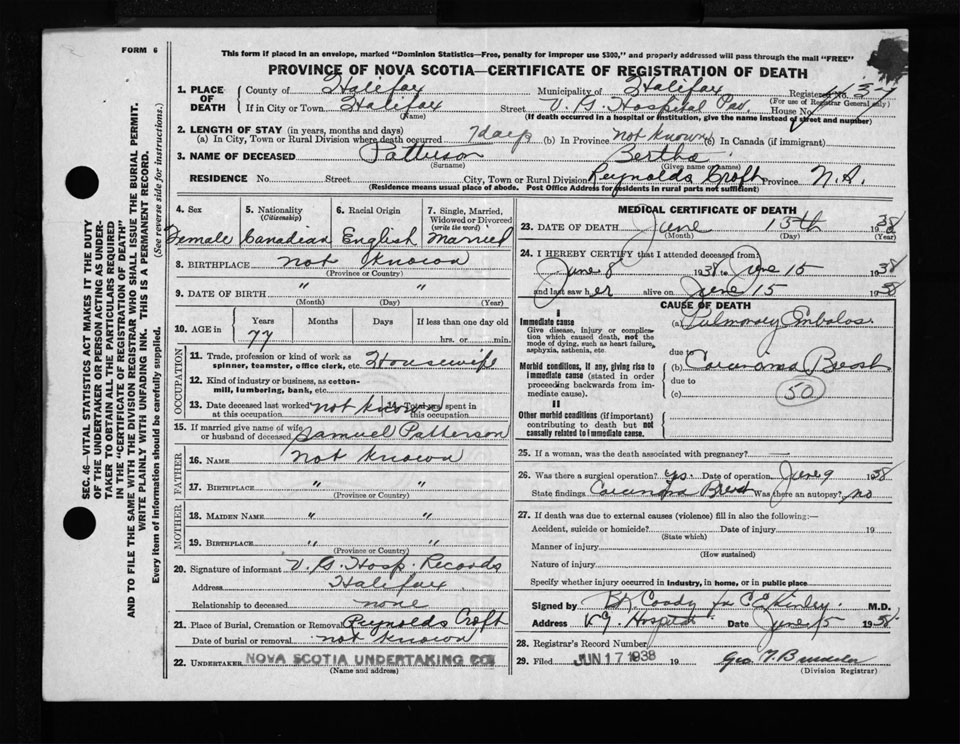 FORM 6
This form if placed in an envelope, marked "Dominion Statistics—Free, penalty for improper use $300," and properly addressed will pass through the mail "FREE"
PROVINCE OF NOVA SCOTIA—CERTIFICATE OF REGISTRATION OF DEATH
1. PLACE OF DEATH
County of Halifax Municipality of Halifax Registered No.
(For use of Registrar General only)
If in City or Town Halifax Street V. G. Hospital Pav. House No.
(Name) (If death occurred in a hospital or institution, give the name instead of street and number)
2. LENGTH OF STAY (in years, months and days)
(a) In City, Town or Rural Division where death occurred 7 days (b) In Province not known (c) In Canada (if immigrant)
3. NAME OF DECEASED Patterson Bertha
(Surname) (Given name or names)
RESIDENCE No. Street City, Town or Rural Division Reynolds Croft Province N.S.
(Residence means usual place of abode. Post Office Address for residents in rural parts not sufficient)
4. Sex Female
5. Nationality (Citizenship) Canadian
6. Racial Origin English
7. Single, Married, Widowed or Divorced (write the word) Married
8. BIRTHPLACE not known
(Province or Country)
9. DATE OF BIRTH " "
(Month) (Day) (Year)
10. AGE in Years Months Days If less than one day old
77 hrs. or min.
OCCUPATION
11. Trade, profession or kind of work as spinner, teamster, office clerk, etc. Housewife
12. Kind of industry or business, as cotton-mill, lumbering, bank, etc.
13. Date deceased last worked at this occupation not known 14. Total years spent in this occupation
15. If married give name of wife or husband of deceased Samuel Patterson
FATHER
16. NAME not known
17. BIRTHPLACE " "
(Province or Country)
MOTHER
18. MAIDEN NAME " "
19. BIRTHPLACE " "
(Province or Country)
20. Signature of informant V. G. Hosp. Records
Address Halifax
Relationship to deceased none
21. Place of Burial, Cremation or Removal Reynolds Croft
Date of burial or removal not known
22. UNDERTAKER NOVA SCOTIA UNDERTAKING CO
(Name and address)
MEDICAL CERTIFICATE OF DEATH
23. DATE OF DEATH June 15th 1938
(Month) (Day) (Year)
24. I HEREBY CERTIFY that I attended deceased from:
June 8 1938 to June 15 1938
and last saw her alive on June 15 1938
CAUSE OF DEATH
I
Immediate cause
Give disease, injury or complication which caused death, not the mode of dying, such as heart failure, asphyxia, asthenia, etc.
(a) Pulmonary Embolos
due to
Morbid conditions, if any, giving rise to immediate cause (stated in order proceeding backwards from immediate cause).
(b) Carcinoma Breast
due to
(c) 50
II
Other morbid conditions (if important) contributing to death but not causally related to immediate cause.
25. If a woman, was the death associated with pregnancy? —
26. Was there a surgical operation? yes. Date of operation June 9 1938
State findings Carcinoma Breast Was there an autopsy? no
27. If death was due to external causes (violence) fill in also the following:—
Accident, suicide or homicide? Date of injury 19
(State which)
Manner of injury
(How sustained)
Nature of injury
Specify whether injury occurred in Industry, in home, or in public place
Signed by M.D.
Address V G. Hospital Date June 15 1938
28. Registrar's Record Number
29. Filed JUN 17 1938 19
(Division Registrar)
SEC. 46—VITAL STATISTICS ACT MAKES IT THE DUTY
OF THE UNDERTAKER OR PERSON ACTING AS UNDER-
TAKER TO OBTAIN ALL THE PARTICULARS REQUIRED
IN THE "CERTIFICATE OF REGISTRATION OF DEATH"
AND TO FILE THE SAME WITH THE DIVISION REGISTRAR WHO SHALL ISSUE THE BURIAL PERMIT.
WRITE PLAINLY WITH UNFADING INK. THIS IS A PERMANENT RECORD.
Every item of information should be carefully supplied. (See reverse side for instructions.)